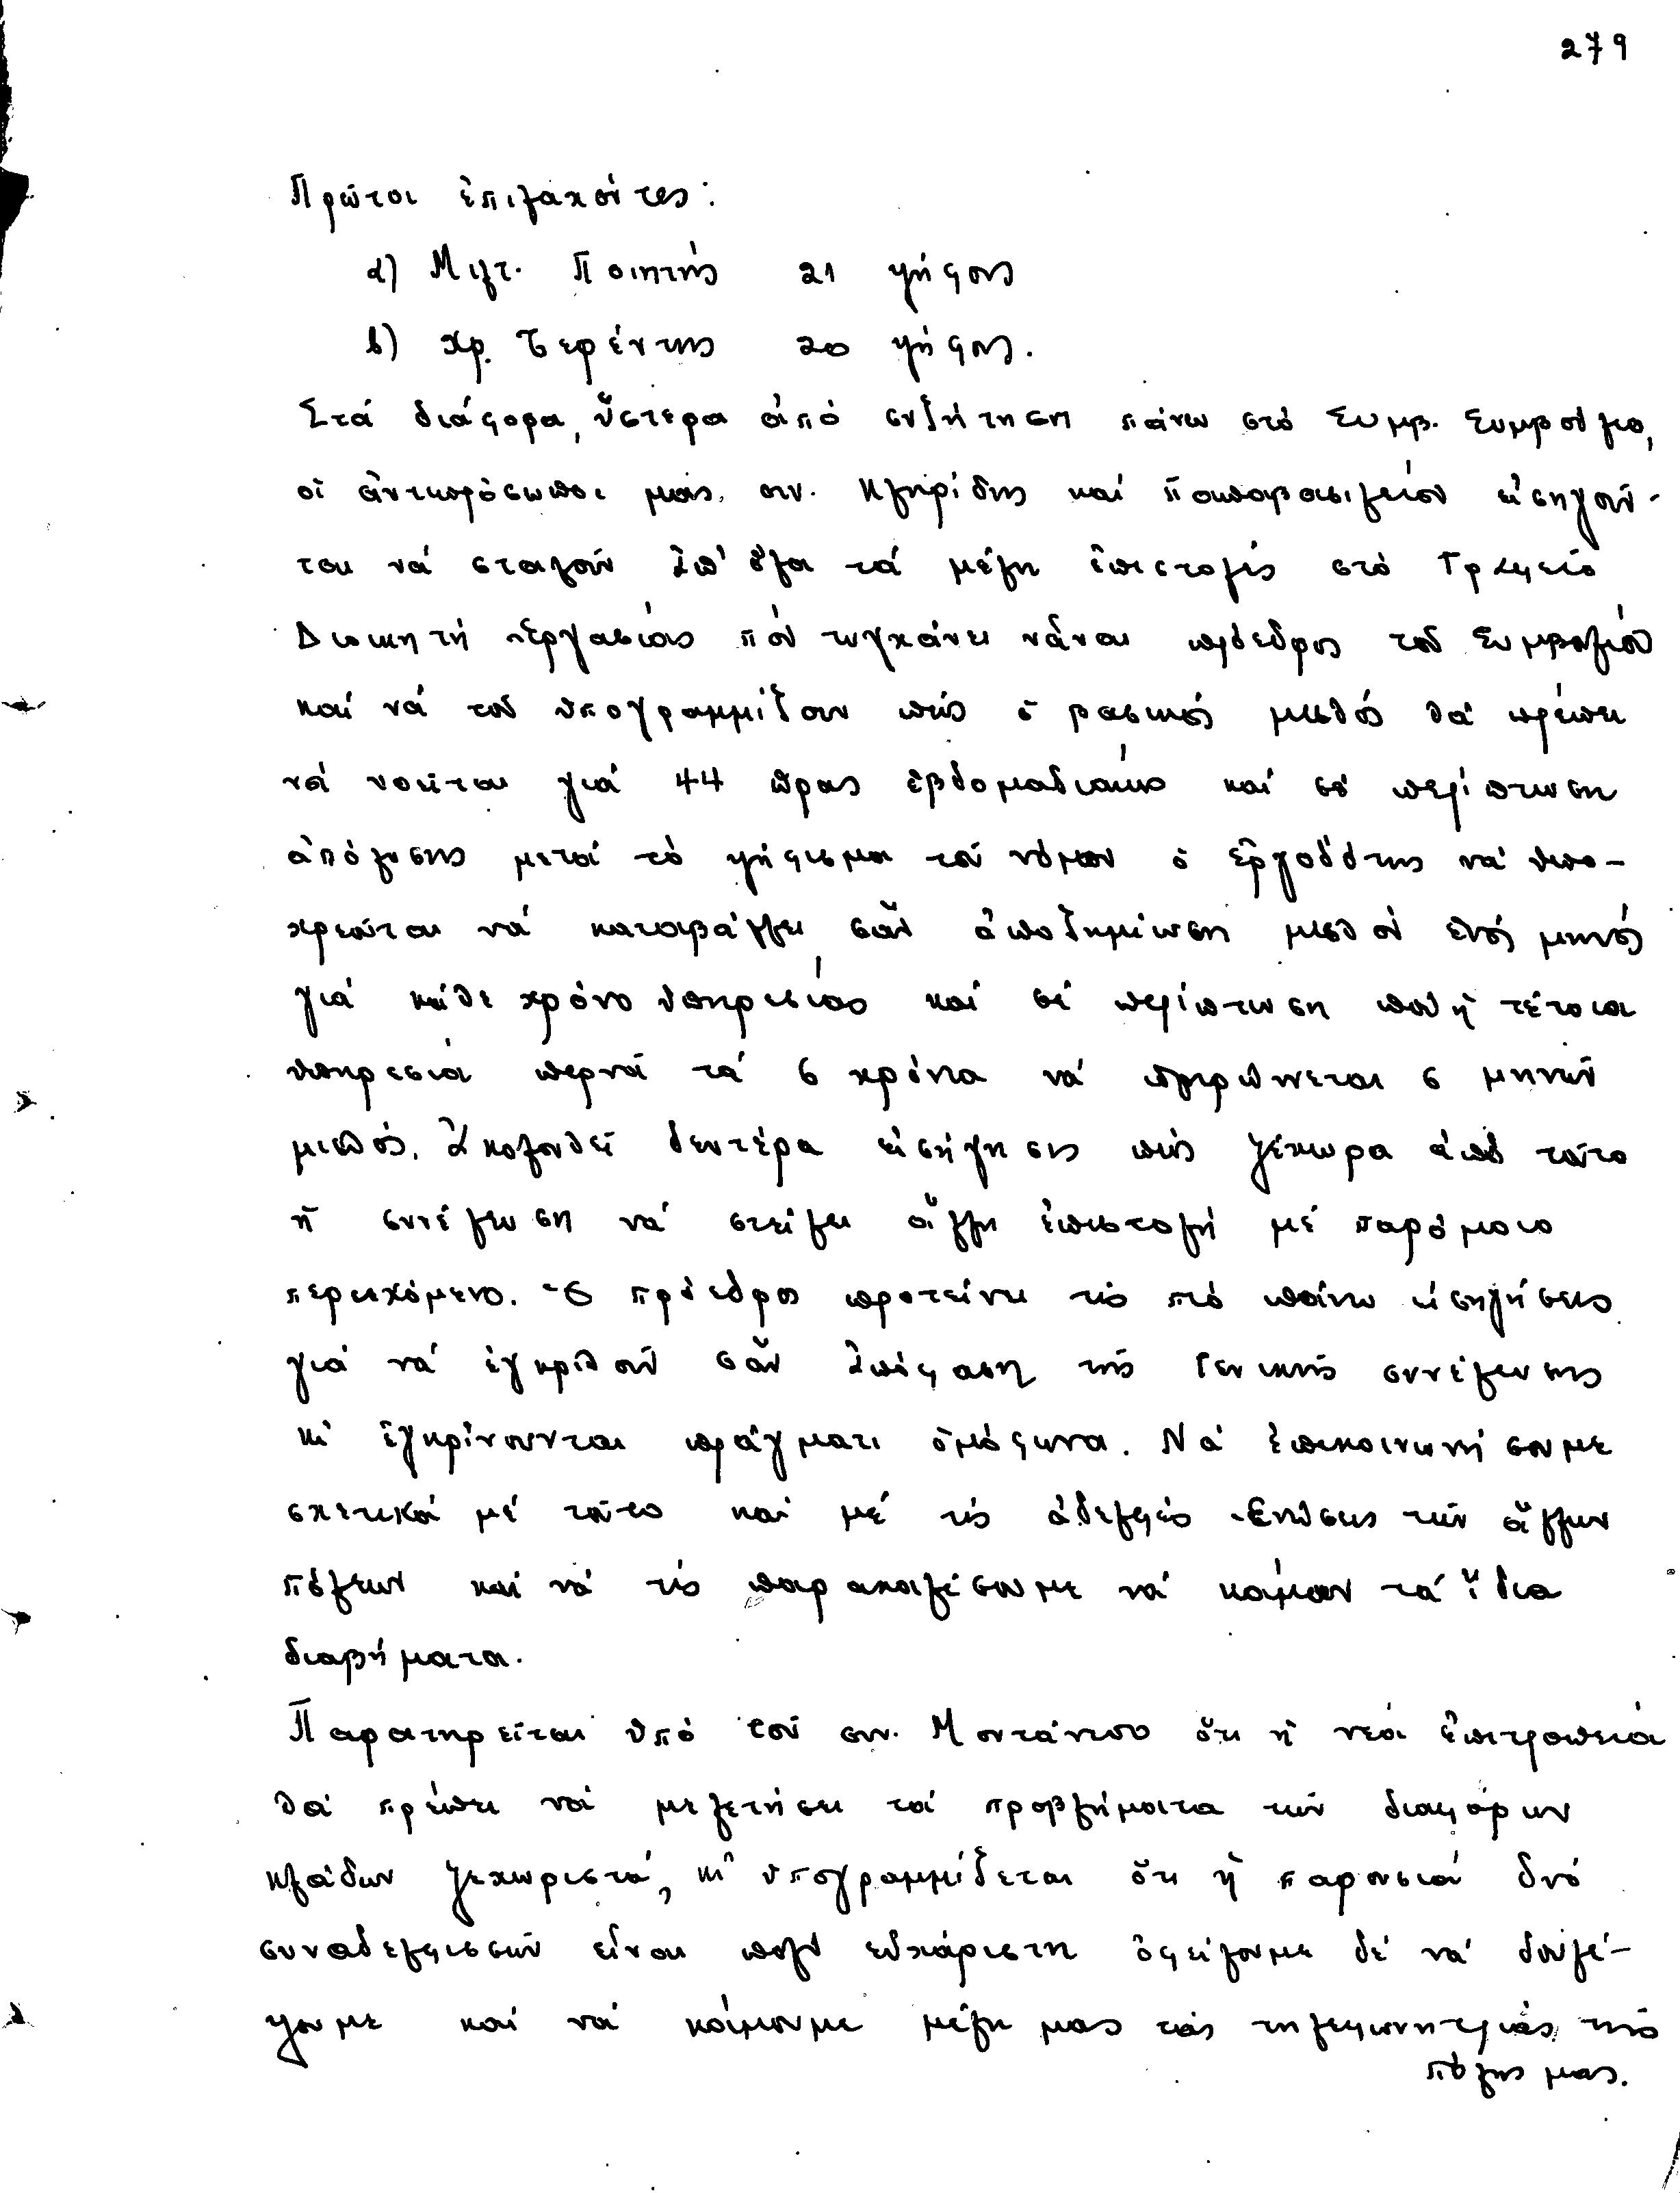 279
Πρῶτοι ἐπιλαχόντες:
α) Μιλτ. Ποιητής 21 ψήφους
β) Χρ. Τερέντης 20 ψήφους.
Στά διάφορα, ὕστερα ἀπό συζήτηση πάνω στό Συμβ. Συμβούλιο,
οἱ ἀντιπρόσωποι μας, συν. Κληρίδης καί Παπαβασιλείου εἰσηγοῦν-
ται νά σταλοῦν ἀπ' ὅλα τά μέλη ἐπιστολές στό Γραφεῖο
Διοικητή Ἐργασίας πού τυγχάνει νἆναι πρόεδρος τοῦ Συμβουλίου
καί νά τοῦ ὑπογραμμίζουν πώς ὁ βασικός μισθός θά πρέπει
νά νοεῖται γιά 44 ὥρας ἑβδομαδιαίως καί σέ περίπτωση
ἀπόλυσης μετά τό ψήφισμα τοῦ νόμου ὁ ἐργοδότης νά ὑπο-
χρεῶται νά καταβάλλει σάν ἀποζημίωση μισθοῦ ἑνός μηνός
γιά κάθε χρόνο ὑπηρεσίας καί σέ περίπτωση πού ἡ τέτοια
ὑπηρεσία περνᾶ τά 6 χρόνια νά πληρώνεται 6 μηνῶν
μισθός. Ἀκολουθεῖ δευτέρα εἰσήγησις πώς ξέχωρα ἀπό τοῦτο
ἡ συνέλευση νά στείλει ἄλλη ἐπιστολή μέ παρόμοιο
περιεχόμενο. Ὁ πρόεδρος προτείνει τίς πιό πάνω εἰσηγήσεις
γιά νά ἐγκριθοῦν σάν ἀπόφαση τῆς Γενικῆς συνέλευσης
κι' ἐγκρίνουνται πράγματι ὁμόφωνα. Νά ἐπικοινωνήσουμε
σχετικά μέ τοῦτο καί μέ τίς ἀδελφές Ἑνώσεις τῶν ἄλλων
πόλεων καί νά τίς παρακαλέσουμε νά κάμουν τά ἴδια
διαβήματα.
Παρατηρεῖται ὑπό τοῦ συν. Μοντάνιου ὅτι ἡ νέα ἐπιτροπεία
θά πρέπει νά μελετήσει τά προβλήματα τῶν διαφόρων
κλάδων ξεχωριστά, κι' ὑπογραμμίζεται ὅτι ἡ παρουσία δυό
συναδελφισσῶν εἶναι πολύ εὐχάριστη ὀφείλουμε δέ νά δουλέ-
ψουμε καί νά κάμουμε μέλη μας τάς τηλεφωνητρίας τῆς
πόλης μας.